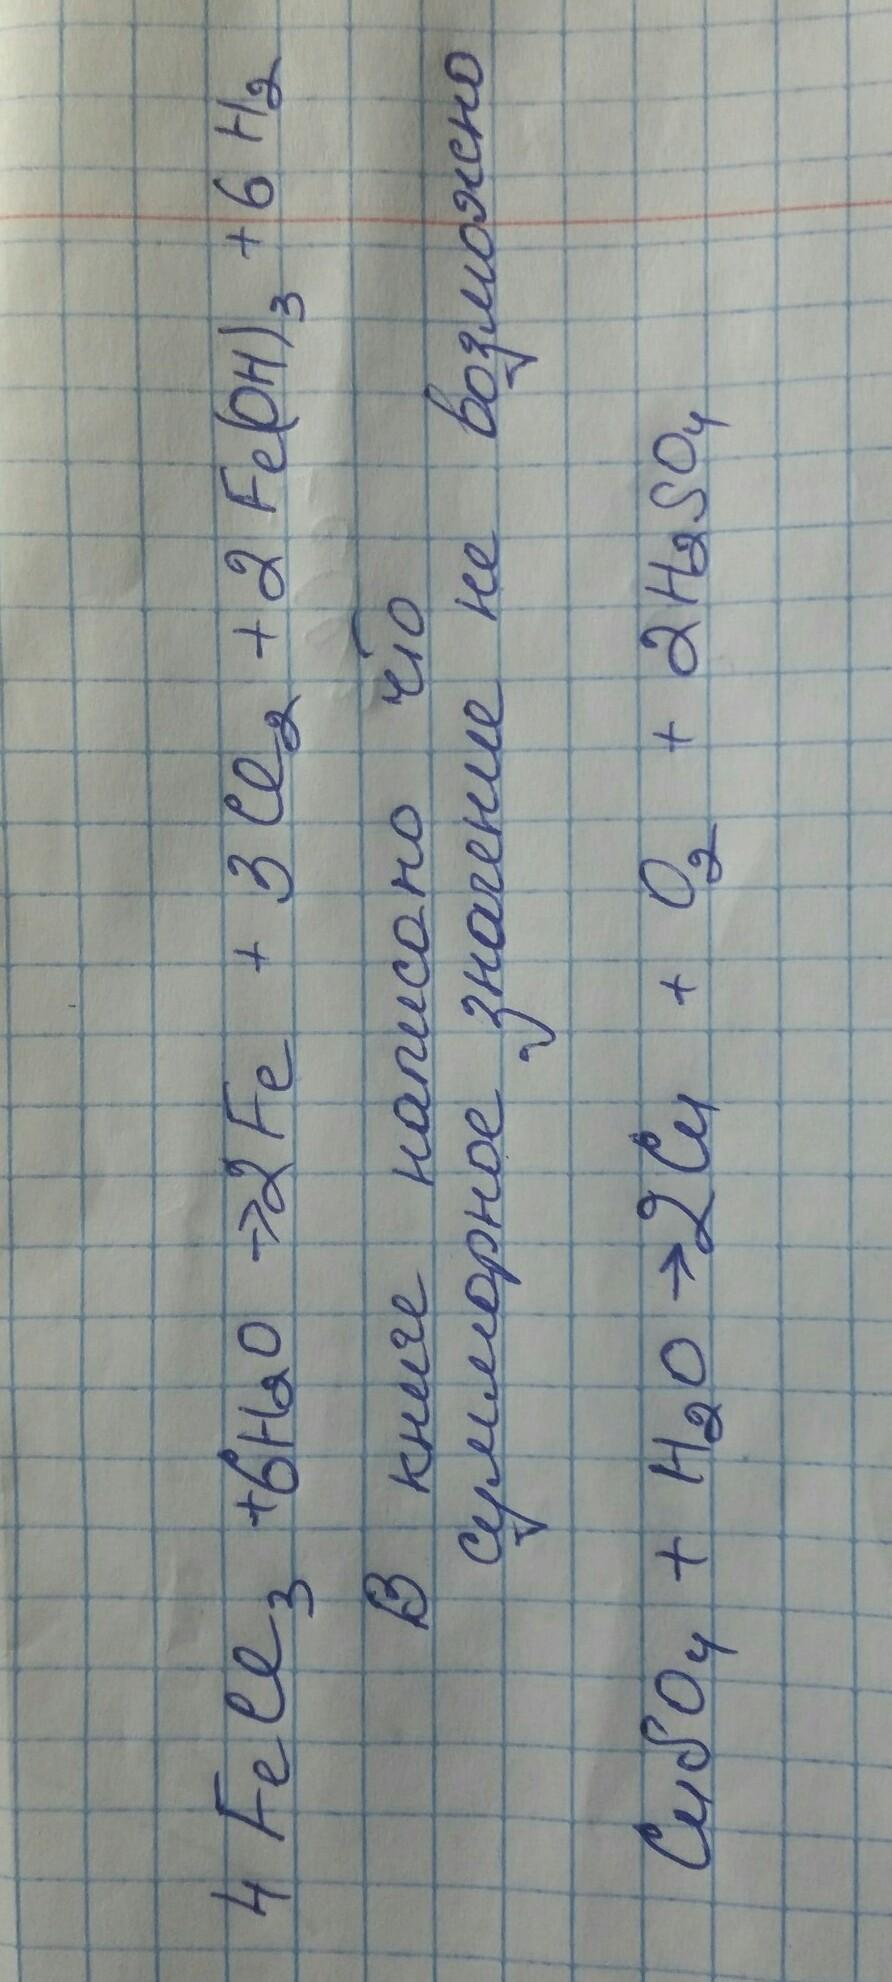 4 FeCl₃ + 6H₂O → 2Fe + 3Cl₂ + 2Fe(OH)₃ + 6H₂
В книге написоно что
суммарное значение не возможно
CuSO₄ + H₂O → 2Cu + O₂ + 2H₂SO₄